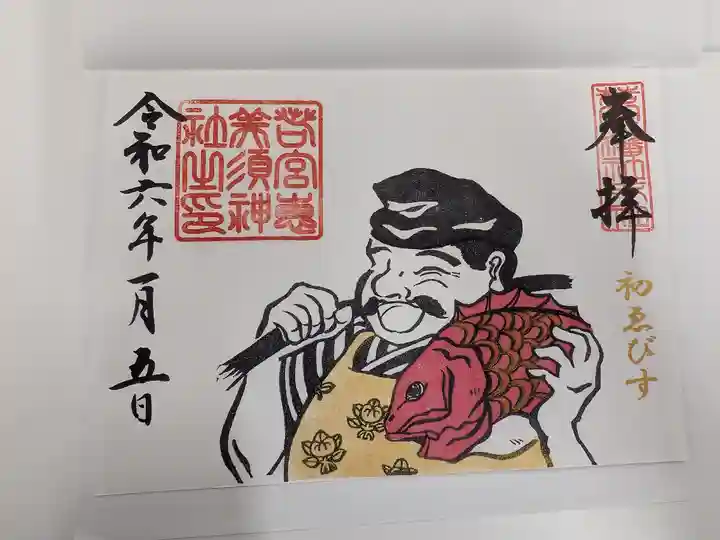 奉拝
初ゑびす
若宮恵
美須神
社之印
令和六年一月五日